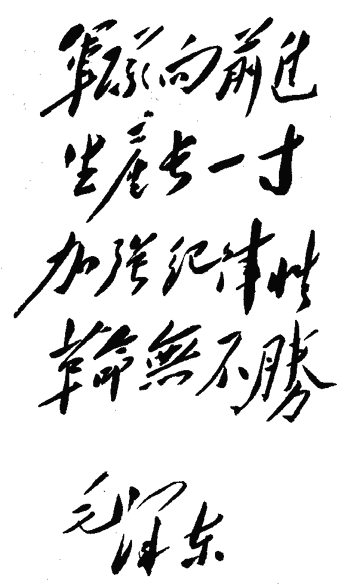 軍队向前进
生産长一寸
加强纪律性
革命無不勝
毛泽东